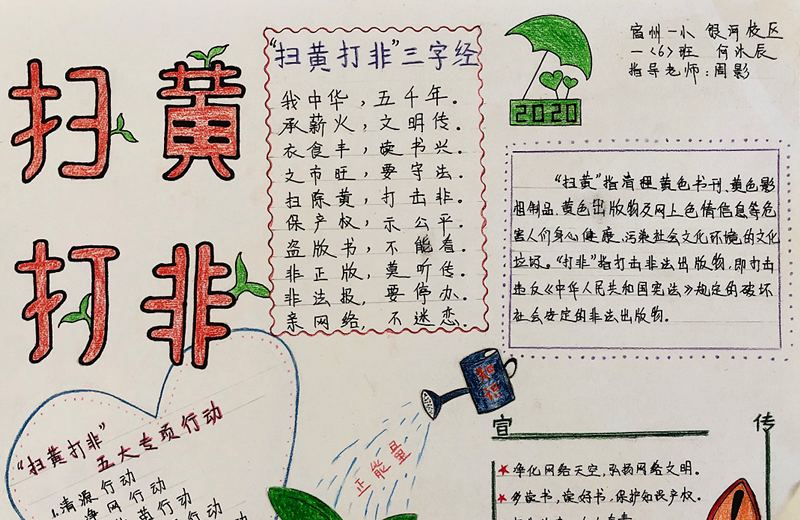 扫黄
打非
"扫黄打非"三字经
我中华，五千年。
承薪火，文明传。
衣食丰，读书兴。
文市旺，要守法。
扫除黄，打击非。
保产权，示公平。
盗版书，不能看。
非正版，莫听传。
非法报，要停办。
亲网络，不迷恋。
2020
宿州一小 银河校区
一〈6〉班 何沐辰
指导老师：周影
"扫黄"指清理黄色书刊、黄色影
相制品、黄色出版物及网上色情信息等危
害人们身心健康、污染社会文化环境的文化
垃圾。"打非"指打击非法出版物，即打击
违反《中华人民共和国宪法》规定的破坏
社会安定的非法出版物。
"扫黄打非"
五大专项行动
1.清源行动
净网行动
苗行动
知识
正能量
宣传
★净化网络天空，弘扬网络文明。
★多读书，读好书，保护知识产权。